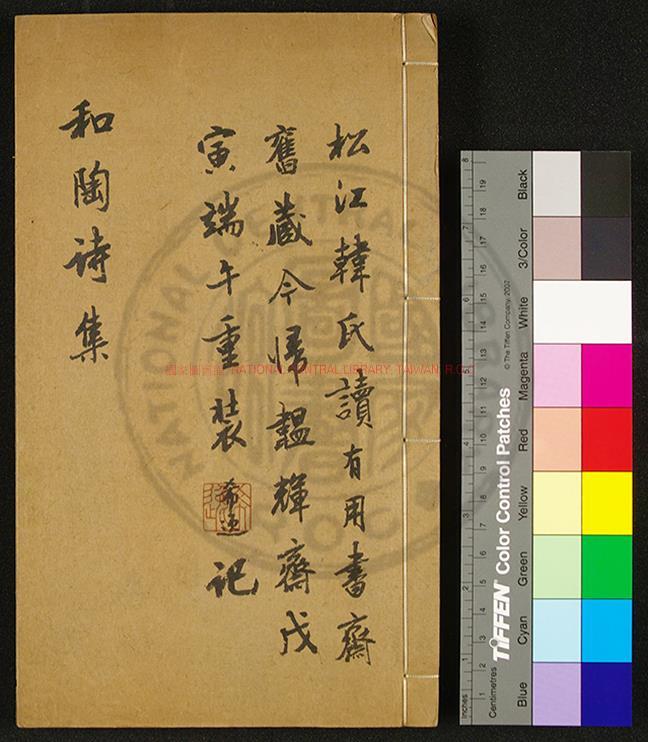 松江韓氏讀有用書齋
舊藏今歸韞輝齋戊
寅端午重裝希逸記
和陶詩集
國家圖書館 NATIONAL CENTRAL LIBRARY, TAIWAN, R.O.C
NATIONAL CENTRAL
TIFFEN® Color Control Patches
© The Tiffen Company, 2007
Inches
1 2 3 4 5 6 7 8
Centimetres
1 2 3 4 5 6 7 8 9 10 11 12 13 14 15 16 17 18 19
Blue
Cyan
Green
Yellow
Red
Magenta
White
3/Color
Black